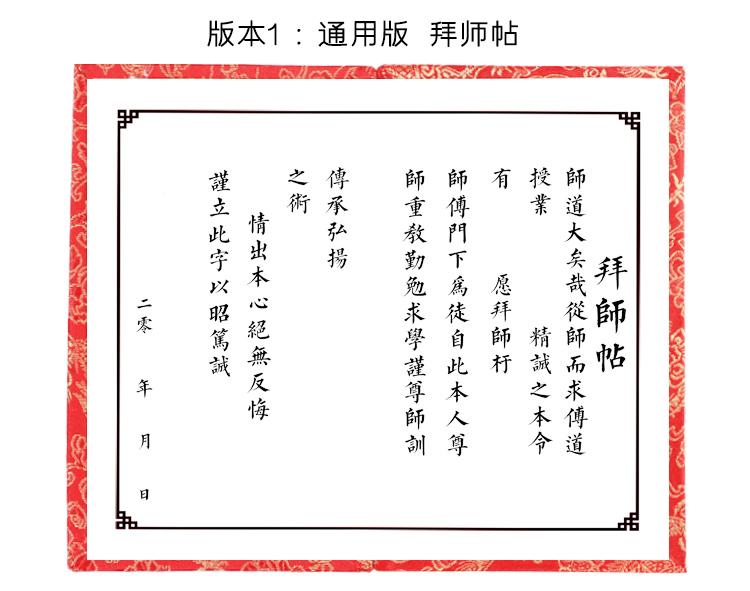 版本1：通用版 拜师帖
拜師帖
師道大矣哉從師而求傅道
授業 精誠之本令
有 愿拜師杅
師傅門下爲徒自此本人尊
師重教勤勉求學謹尊師訓
傳承弘揚
之術
情出本心絕無反悔
謹立此字以昭篤誠
二零 年 月 日